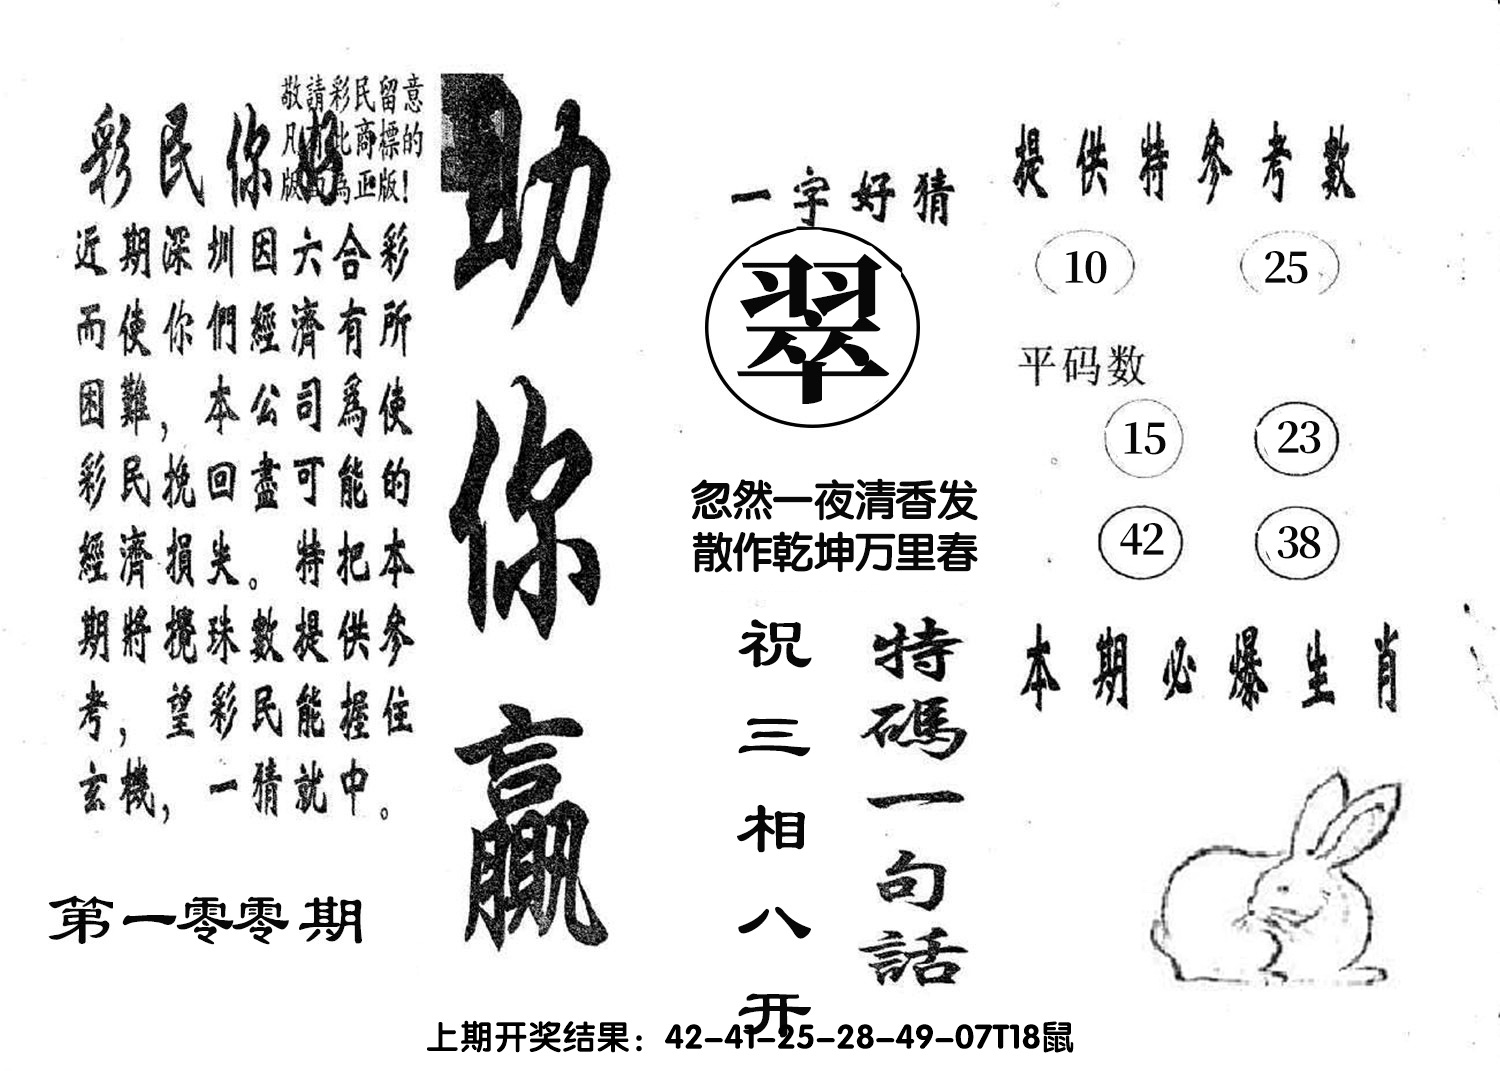 敬請彩民留意
凡有此商標的
版面為正版！
彩民你好
近期深圳因六合彩
而使你們經濟有所
困難，本公司爲使
彩民挽回盡可能的
經濟損失。特把本
期將攪珠數提供參
考，望彩民能握住
玄機，一猜就中。
第一零零期
助你贏
一字好猜
翠
忽然一夜清香发
散作乾坤万里春
特碼一句話
祝三相八开
提供特參考數
10 25
平码数
15 23
42 38
本期必爆生肖
上期开奖结果：42-41-25-28-49-07T18鼠